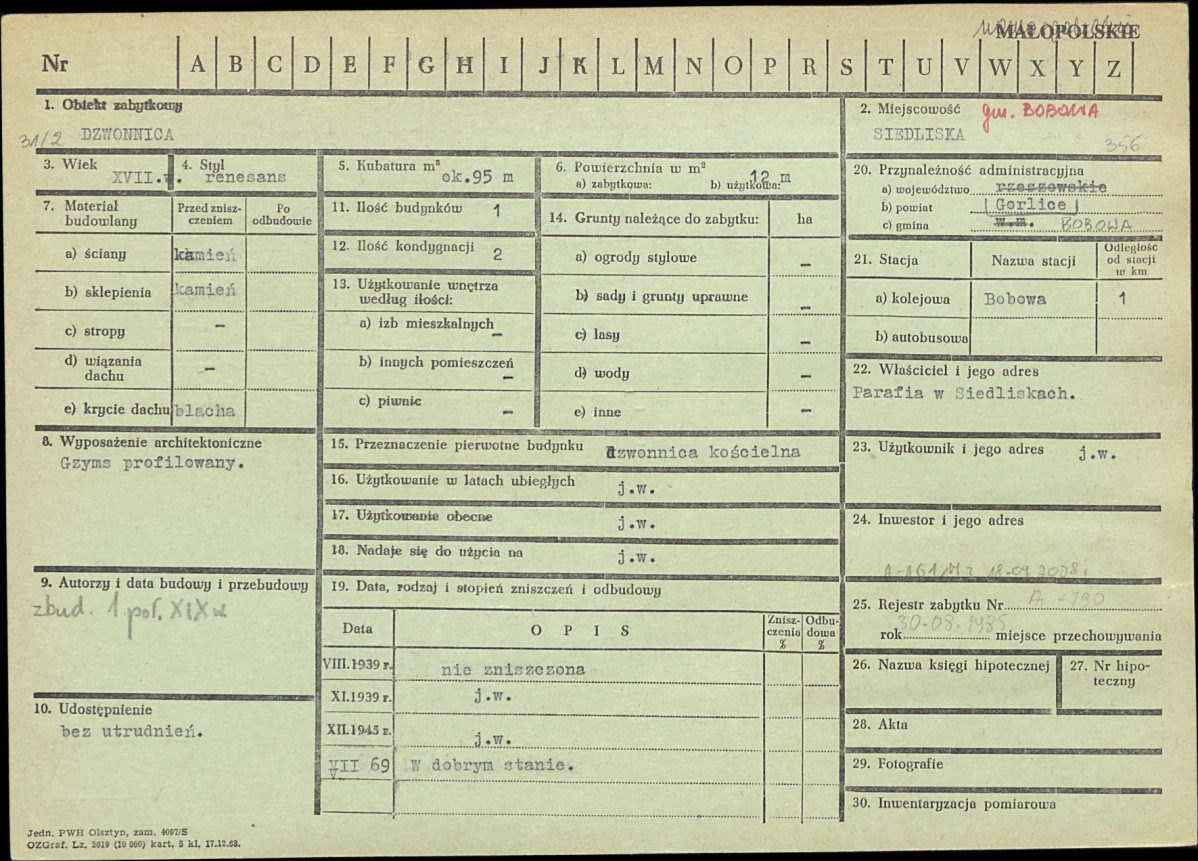 MAŁOPOLSKIE
Nr A B C D E F G H I J K L M N O P R S T U V W X Y Z
1. Obiekt zabytkowy
31/2 DZWONNICA
2. Miejscowość gm. BOBOWA
SIEDLISKA 356
3. Wiek
XVII.w.
4. Styl
renesans
5. Kubatura m³
ok.95 m
6. Powierzchnia w m²
a) zabytkowa: b) użytkowa: 12 m
7. Materiał budowlany
Przed zniszczeniem
Po odbudowie
a) ściany kamień
b) sklepienia kamień
c) stropy –
d) wiązania dachu –
e) krycie dachu blacha
8. Wyposażenie architektoniczne
Gzyms profilowany.
9. Autorzy i data budowy i przebudowy
zbud. 1 poł. XIX w
10. Udostępnienie
bez utrudnień.
11. Ilość budynków 1
12. Ilość kondygnacji 2
13. Użytkowanie wnętrza
według ilości:
a) izb mieszkalnych –
b) innych pomieszczeń –
c) piwnic –
14. Grunty należące do zabytku: ha
a) ogrody stylowe –
b) sady i grunty uprawne –
c) lasy –
d) wody –
e) inne –
15. Przeznaczenie pierwotne budynku dzwonnica kościelna
16. Użytkowanie w latach ubiegłych j.w.
17. Użytkowanie obecne j.w.
18. Nadaje się do użycia na j.w.
19. Data, rodzaj i stopień zniszczeń i odbudowy
Data OPIS Zniszczenia % Odbudowa %
VIII.1939 r. nie zniszczona
XI.1939 r. j.w.
XII.1945 r. j.w.
VII 69 W dobrym stanie.
20. Przynależność administracyjna
a) województwo rzeszowskie
b) powiat Gorlice
c) gmina w.m. BOBOWA
21. Stacja Nazwa stacji Odległość od stacji w km
a) kolejowa Bobowa 1
b) autobusowa
22. Właściciel i jego adres
Parafia w Siedliskach.
23. Użytkownik i jego adres j.w.
24. Inwestor i jego adres
A-161/M z 18.09.2008
25. Rejestr zabytku Nr A-190
30.08.1985
rok miejsce przechowywania
26. Nazwa księgi hipotecznej
27. Nr hipoteczny
28. Akta
29. Fotografie
30. Inwentaryzacja pomiarowa
Jedn. PWH Olsztyn, zam. 4097/S
OZGraf. Lz. 2619 (10 000) kart. 5 kl. 17.12.68.